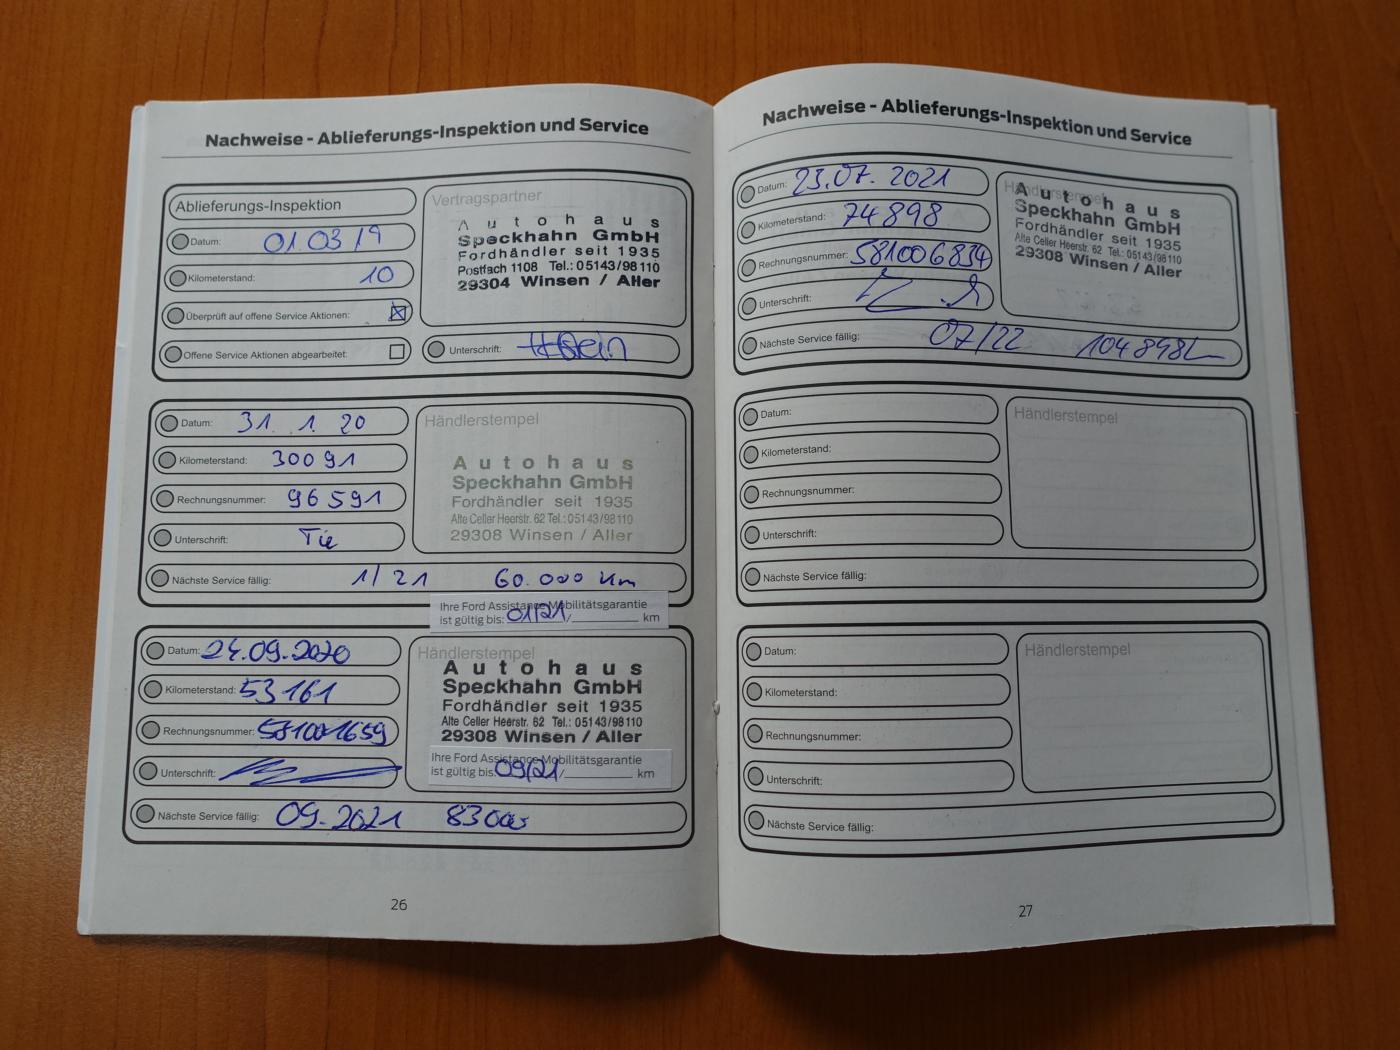 Nachweise - Ablieferungs-Inspektion und Service
Ablieferungs-Inspektion
Datum: 01 03 19
Kilometerstand: 10
Überprüft auf offene Service Aktionen:
Offene Service Aktionen abgearbeitet:
Vertragspartner
Autohaus
Speckhahn GmbH
Fordhändler seit 1935
Postfach 1108 Tel.: 05143/98110
29304 Winsen / Aller
Unterschrift:
Datum: 31. 1. 20
Kilometerstand: 30091
Rechnungsnummer: 96591
Unterschrift: Tie
Händlerstempel
Autohaus
Speckhahn GmbH
Fordhändler seit 1935
Alte Celler Heerstr. 62 Tel.: 05143/98110
29308 Winsen / Aller
Nächste Service fällig: 1/21 60.000 km
Ihre Ford Assistance Mobilitätsgarantie
ist gültig bis: 01/21/ km
Datum: 24.09.2020
Kilometerstand: 53161
Rechnungsnummer: 581001659
Unterschrift:
Händlerstempel
Autohaus
Speckhahn GmbH
Fordhändler seit 1935
Alte Celler Heerstr. 62 Tel.: 05143/98110
29308 Winsen / Aller
Ihre Ford Assistance Mobilitätsgarantie
ist gültig bis: 09/21/ km
Nächste Service fällig: 09.2021 83000
26
Nachweise - Ablieferungs-Inspektion und Service
Datum: 23.07.2021
Kilometerstand: 74898
Rechnungsnummer: 581006834
Unterschrift:
Händlerstempel
Autohaus
Speckhahn GmbH
Fordhändler seit 1935
Alte Celler Heerstr. 62 Tel.: 05143/98110
29308 Winsen / Aller
Nächste Service fällig: 07/22 104898
Datum:
Kilometerstand:
Rechnungsnummer:
Unterschrift:
Händlerstempel
Nächste Service fällig:
Datum:
Kilometerstand:
Rechnungsnummer:
Unterschrift:
Händlerstempel
Nächste Service fällig:
27